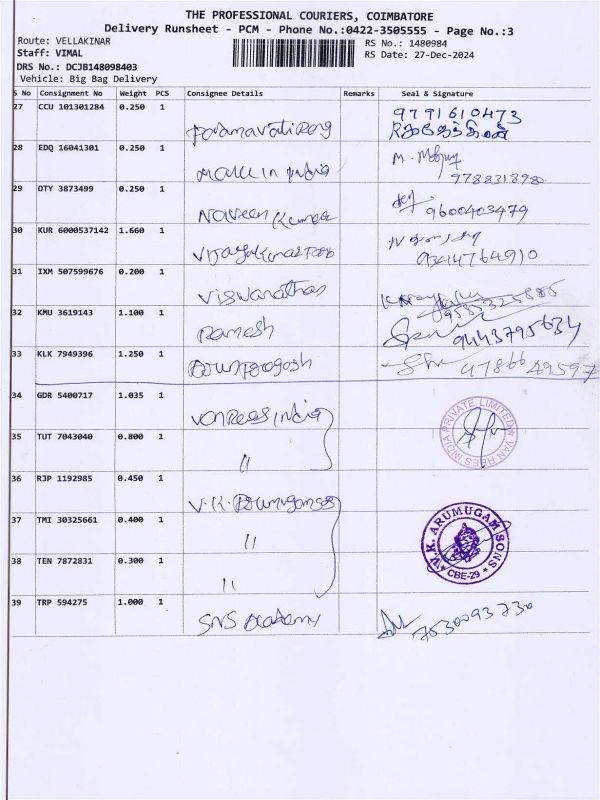 THE PROFESSIONAL COURIERS, COIMBATORE
Delivery Runsheet - PCM - Phone No.:0422-3505555 - Page No.:3
Route: VELLAKINAR RS No.: 1480984
Staff: VIMAL RS Date: 27-Dec-2024
DRS No.: DCJB148098403
Vehicle: Big Bag Delivery
S No Consignment No Weight PCS Consignee Details Remarks Seal & Signature
27 CCU 101301284 0.250 1 9791610473
28 EDQ 16041301 0.250 1 Make in India
29 OTY 3873499 0.250 1 Naveen Kumar 9600403479
30 KUR 6000537142 1.660 1 9344764910
31 IXM 507599676 0.200 1 Viswanathan 9585325885
32 KMU 3619143 1.100 1 Ramesh 9443795634
33 KLK 7949396 1.250 1
34 GDR 5400717 1.035 1 Van Rees India VAN REES INDIA PRIVATE LIMITED
35 TUT 7043040 0.800 1 "
36 RJP 1192985 0.450 1
37 TMI 30325661 0.400 1 " V.K. ARUMUGAM SONS
38 TEN 7872831 0.300 1 " CBE-29
39 TRP 594275 1.000 1 SNS Academy 7530093730